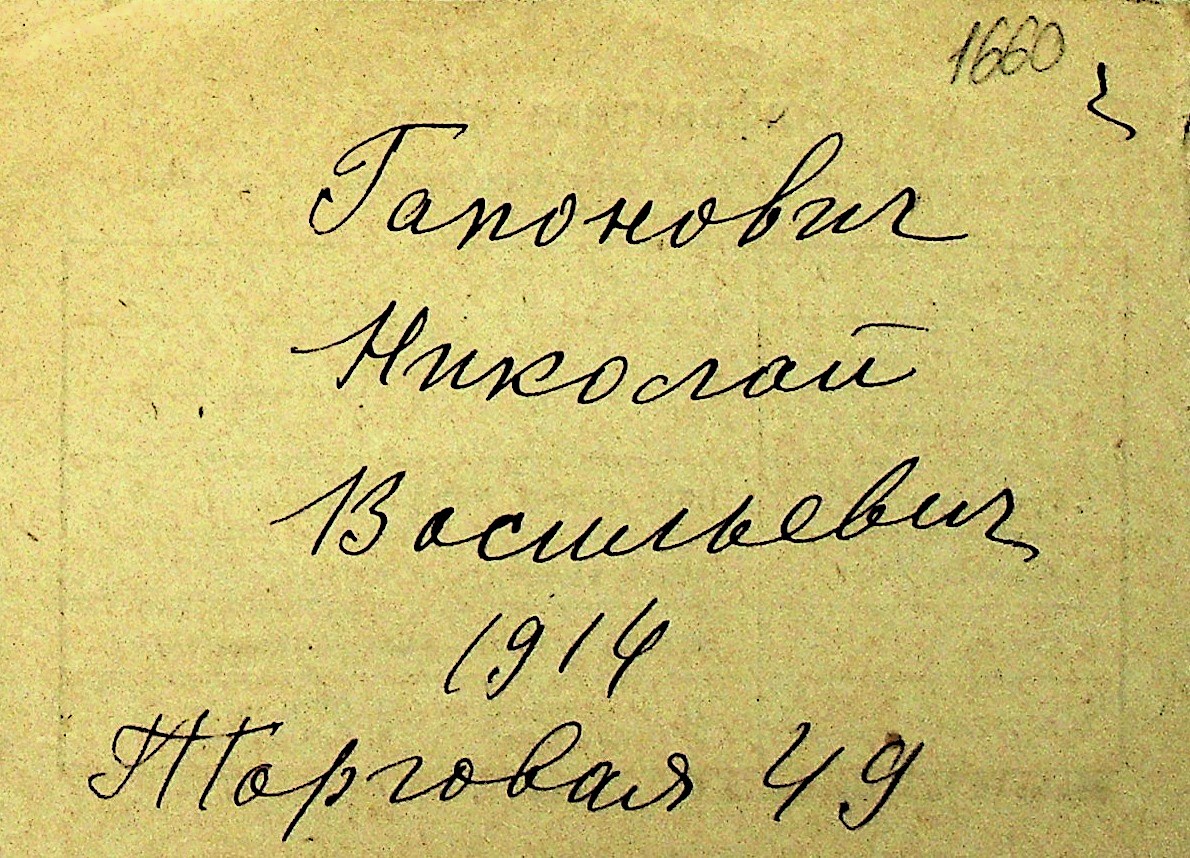 1660
Гапонович
Николай
Васильевич
1914
Торговая 49